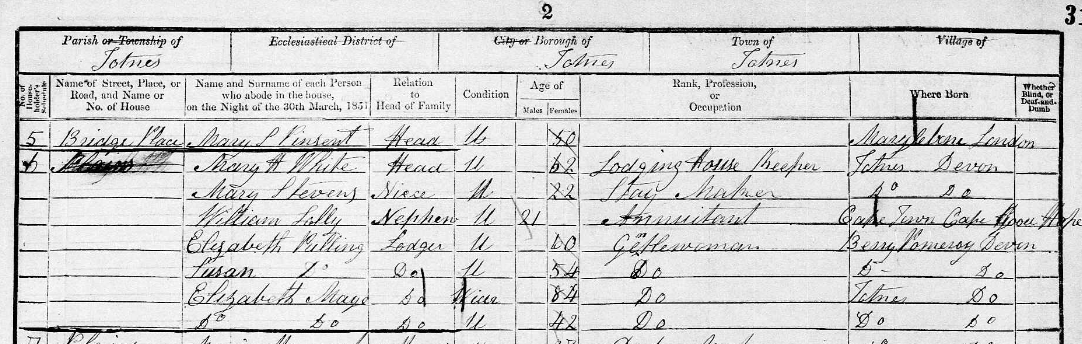 2
3
Parish or Township of Ecclesiastical District of City or Borough of Town of Village of
Totnes Totnes Totnes
No. of House-holder's Schedule Name of Street, Place, or Road, and Name or No. of House Name and Surname of each Person who abode in the house, on the Night of the 30th March, 1851 Relation to Head of Family Condition Age of Males Females Rank, Profession, or Occupation Where Born Whether Blind, or Deaf-and-Dumb
5 Bridge Place Mary S Vinsent Head U 50 Marylebone London
6 Mary H White Head U 62 Lodging House Keeper Totnes Devon
Mary Stevens Niece U 22 Stay Maker Do Do
William Lilly Nephew U 21 Annuitant Cape Town Cape Good Hope
Elizabeth Lodger U 40 Gentlewoman Berry Pomeroy Devon
Susan Do Do U 54 Do Do Do
Elizabeth Maye Do Widr 84 Do Totnes Do
Do Do Do U 42 Do Do Do
7